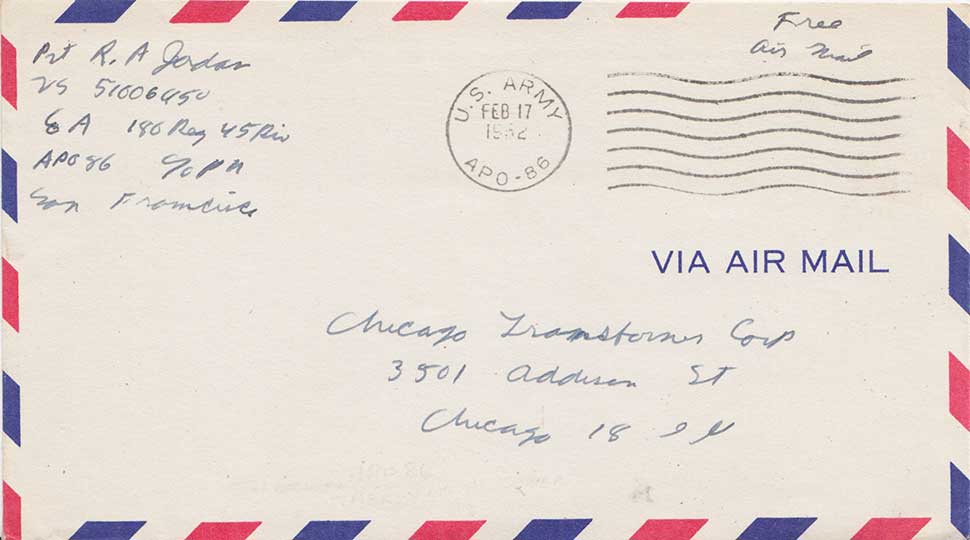 Pvt R. A Jordan
US 51006450
Co A 180 Reg 45 Div
APO 86 % PM
San Francisco
Free
Air Mail
U.S. ARMY
FEB 17
1952
APO-86
VIA AIR MAIL
Chicago Transformer Corp
3501 Addison St
Chicago 18 Ill